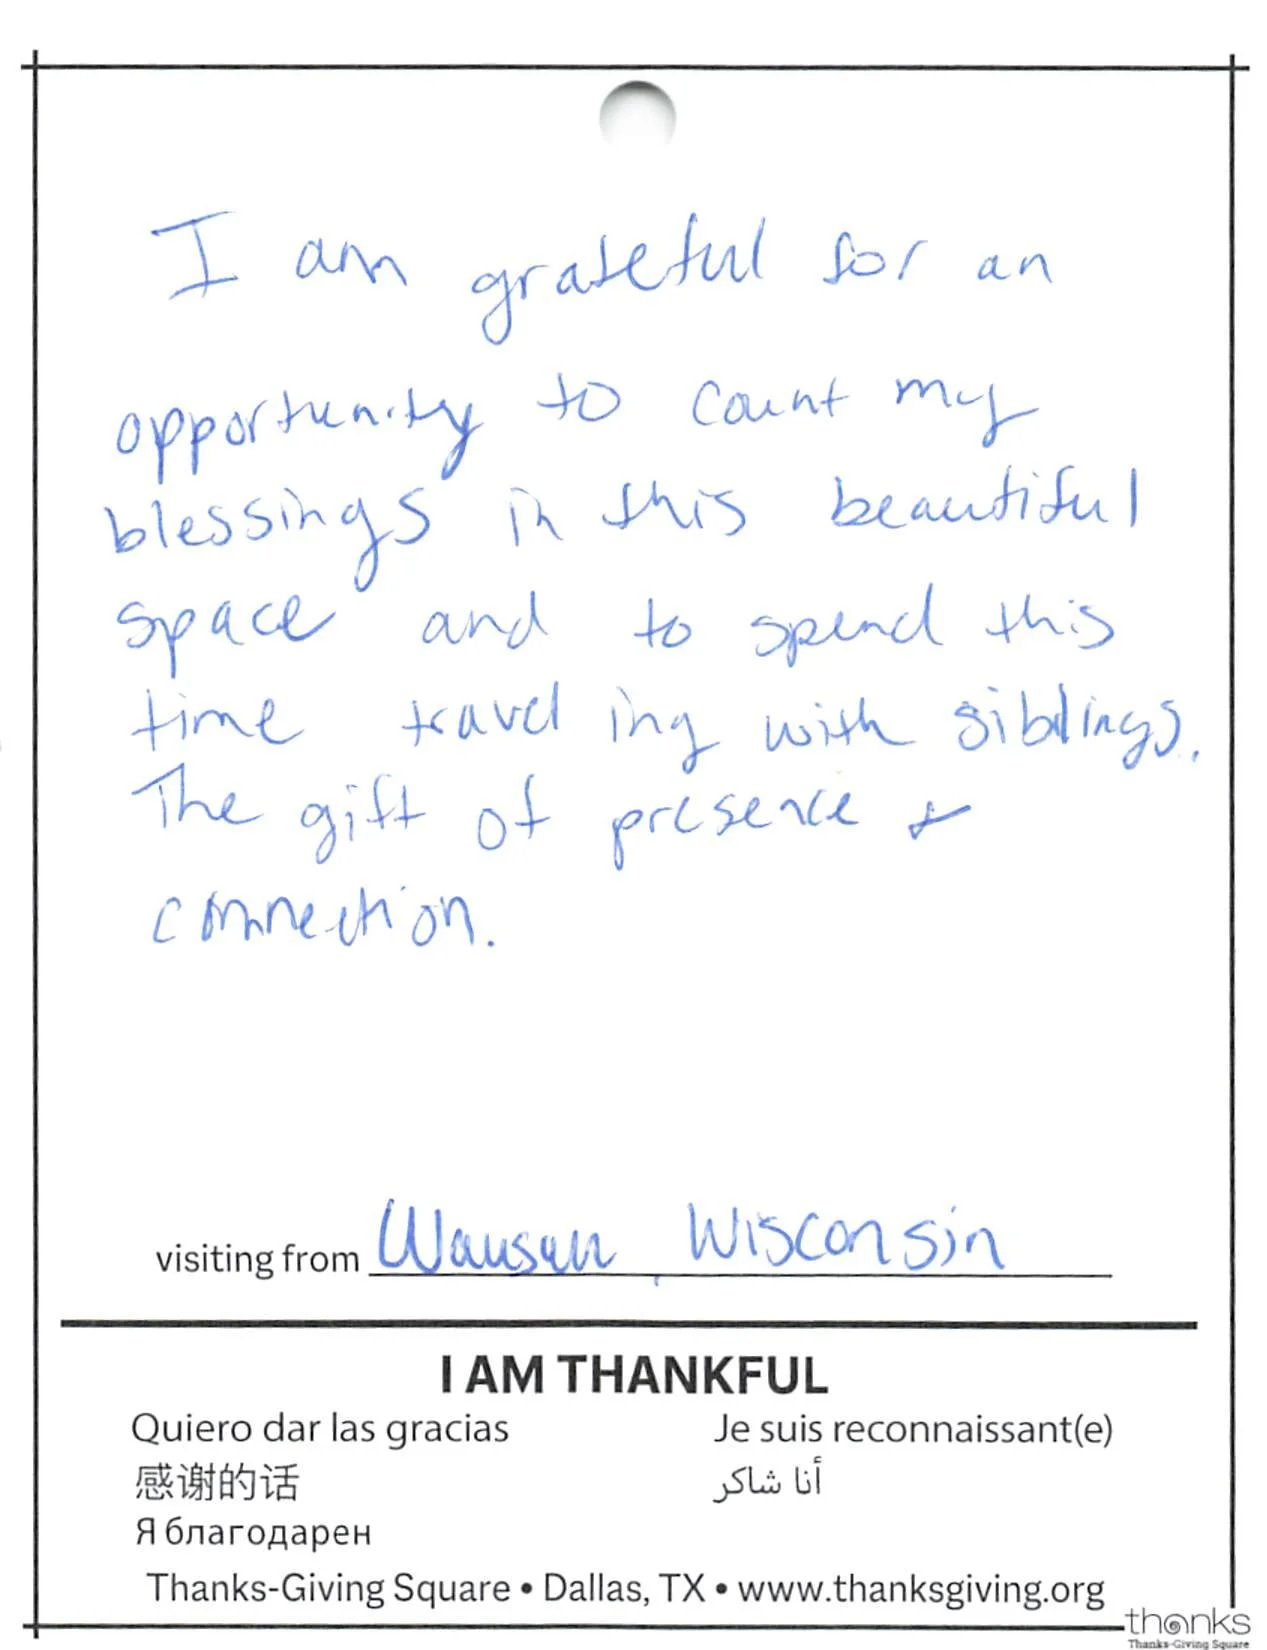 I am grateful for an
opportunity to count my
blessings in this beautiful
space and to spend this
time traveling with siblings.
The gift of presence &
connection.
visiting from Wausau, Wisconsin
I AM THANKFUL
Quiero dar las gracias Je suis reconnaissant(e)
感谢的话 أنا شاكر
Я благодарен
Thanks-Giving Square • Dallas, TX • www.thanksgiving.org
thanks
Thanks-Giving Square